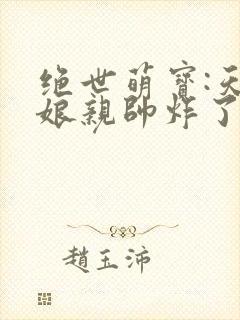 绝世萌寶:天
娘親帥炸了
趙玉沛